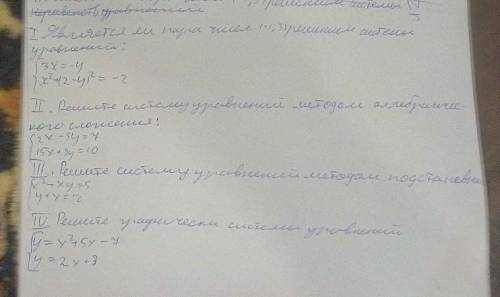 решением системы
I Является ли пара чисел (-1, 3) решением системы
уравнений:
3x=-y
x²+(2-y)²=-2
II. Решите систему уравнений методом алгебраичес-
кого сложения:
2x-3y=7
15x+3y=10
III. Решите систему уравнений методом подстановки
x²-xy=5
y+x=-2
IV Решите графически системы уравнений
y=x²+5x-7
y=2x+3